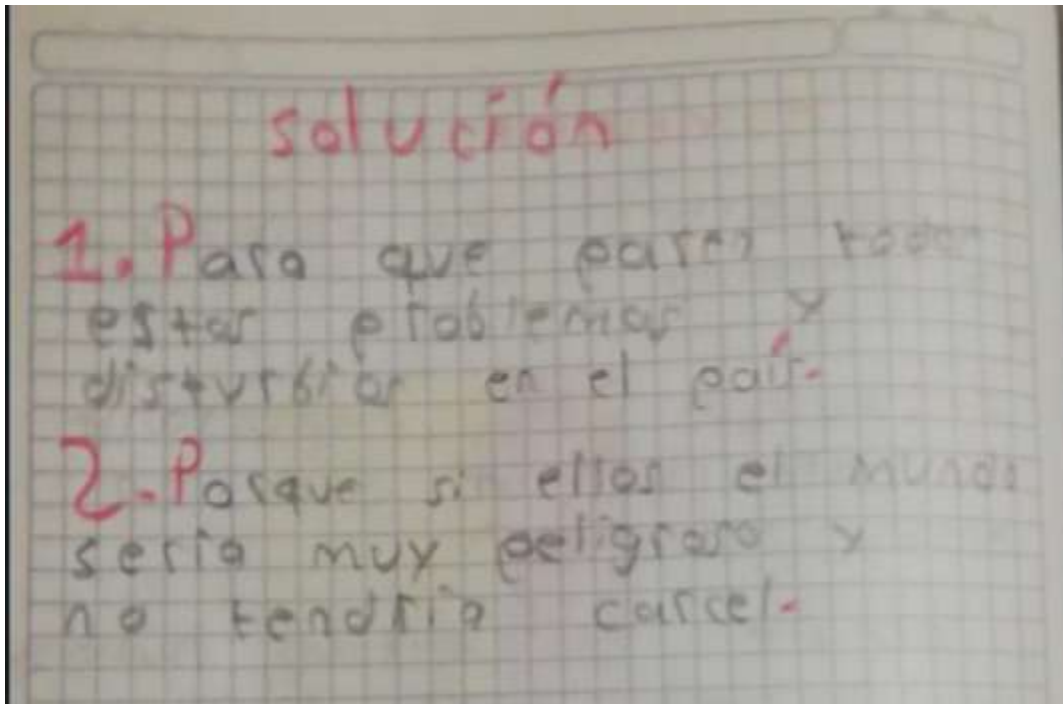 solución
1. Para que paren todos
estos problemas y
disturbios en el país.
2. Porque si ellos el mundo
seria muy peligroso y
no tendria carcel.